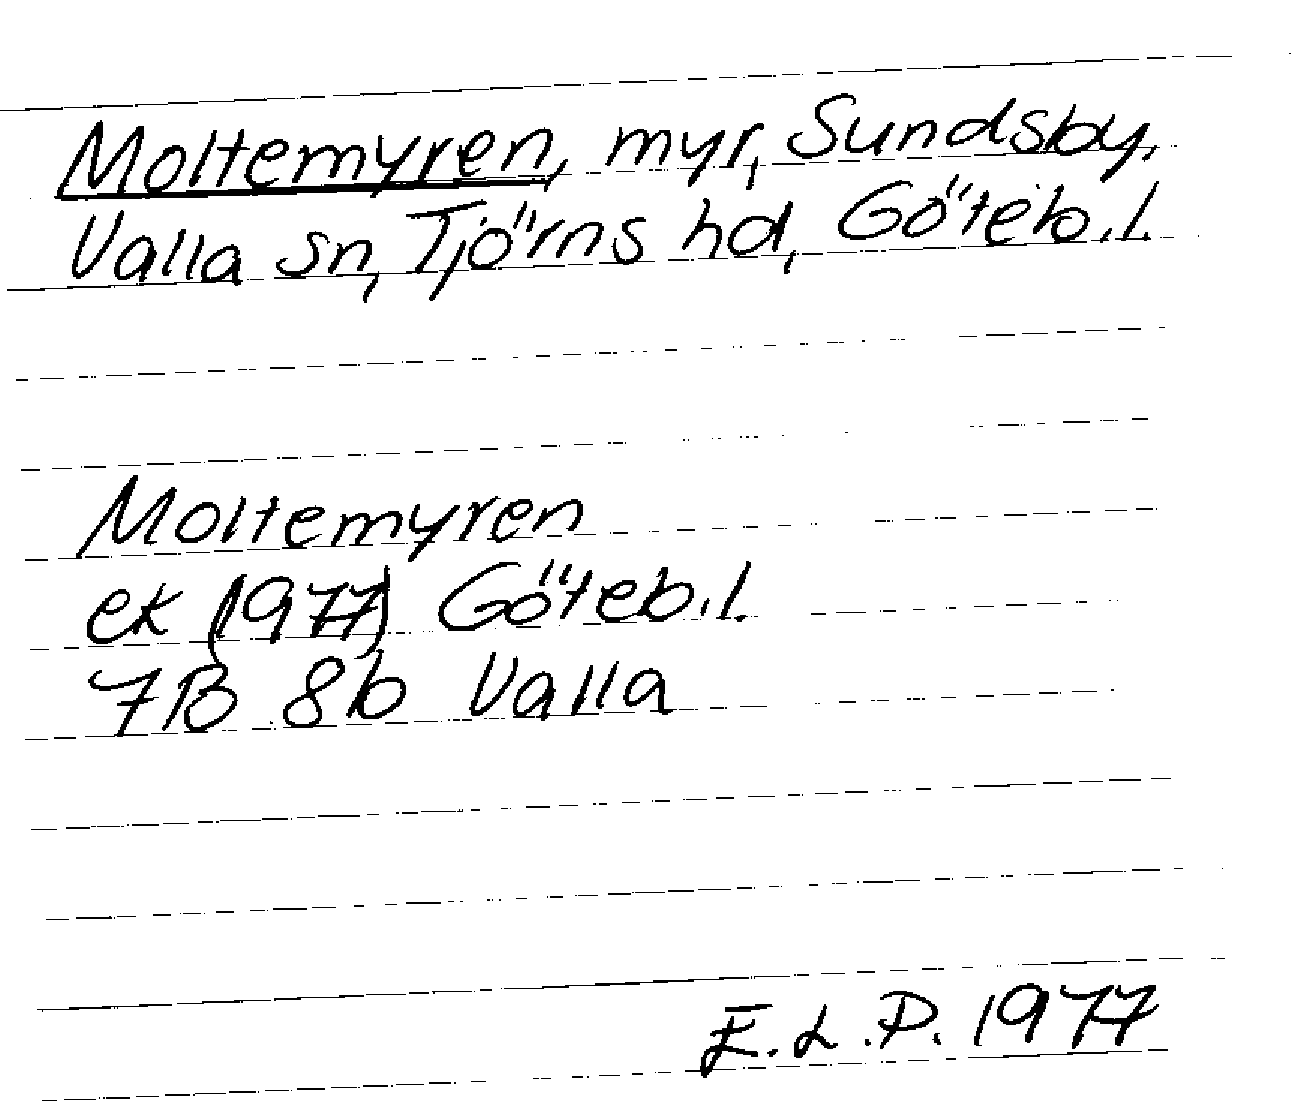 Moltemyren, myr, Sundsby,
Valla sn, Tjörns hd, Göteb.l.
Moltemyren
ek (1977) Göteb.l.
7B 8b Valla
E.L.P. 1977